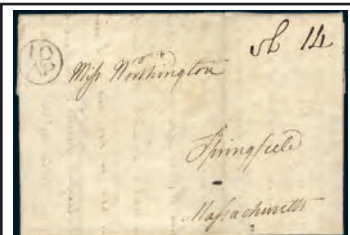 sh 14
Miſs Worthington
Springfield
Maſsachusetts